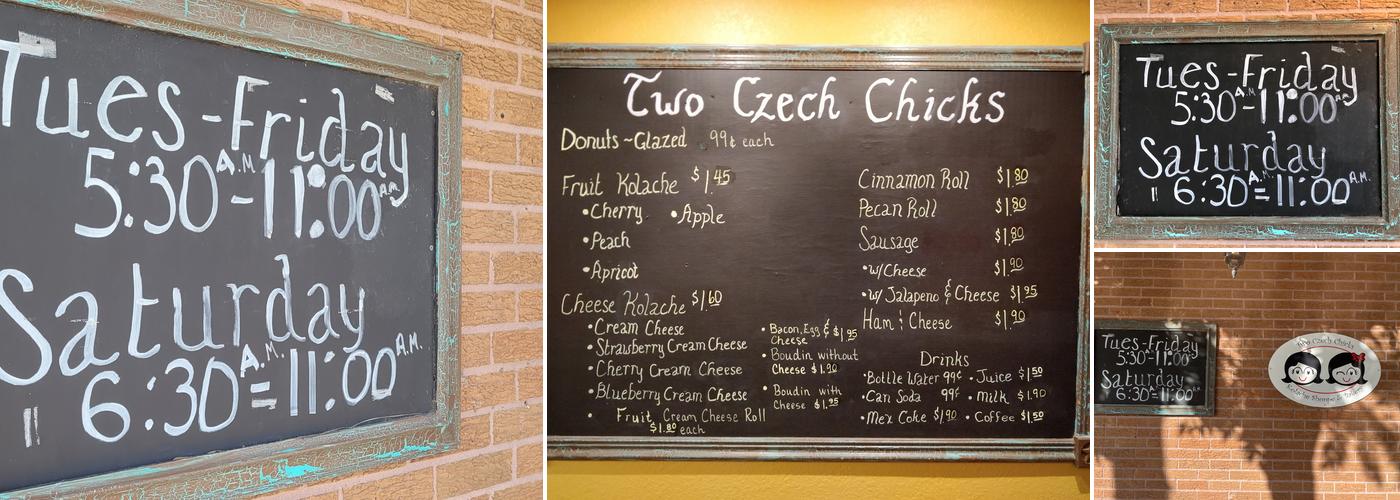 Tues-Friday
5:30 A.M. -11:00 A.M.
Saturday
" 6:30 A.M. = 11:00 A.M.
Two Czech Chicks
Donuts ~Glazed 99¢ each
Fruit Kolache $1.45
•Cherry •Apple
•Peach
•Apricot
Cheese Kolache $1.60
•Cream Cheese
•Strawberry Cream Cheese
•Cherry Cream Cheese
•Blueberry Cream Cheese
• Fruit Cream Cheese Roll
$1.80 each
• Bacon, Egg & $1.95
Cheese
• Boudin without
Cheese $1.90
• Boudin with
Cheese $1.95
Cinnamon Roll $1.80
Pecan Roll $1.80
Sausage $1.80
•w/Cheese $1.90
•w/ Jalapeno & Cheese $1.95
Ham & Cheese $1.90
Drinks
•Bottle Water 99¢ •Juice $1.50
•Can Soda 99¢ •Milk $1.90
•Mex Coke $1.90 •Coffee $1.50
Tues-Friday
5:30 A.M. -11:00
Saturday
" 6:30 A.M. = 11:00 A.M.
Tues-Friday
5:30-11:00
Saturday
" 6:30=11:00
Two Czech Chicks